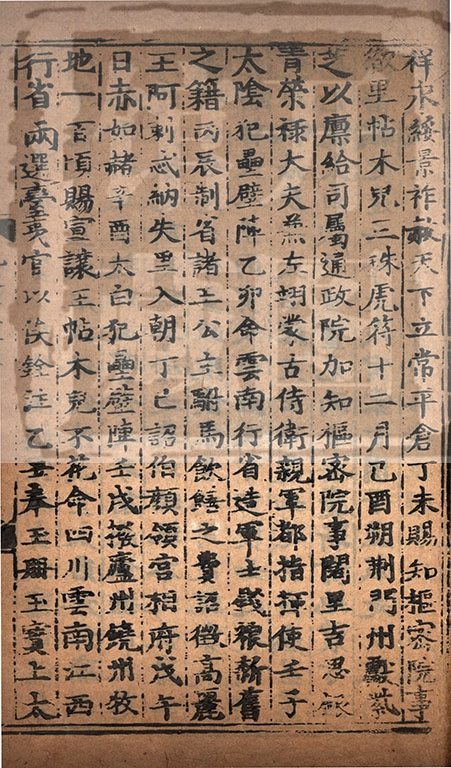 祥永綏景祚敷天下立常平倉丁未賜知樞密院事
徹里帖木兒三珠虎符十二月己酉朔荆門州獻紫
芝以廪給司屬通政院加知樞密院事闊里吉思銀
青榮禄大夫兼左翊蒙古侍衛親軍都指揮使壬子
太陰犯壘壁陣乙卯命雲南行省造軍士錢粮新舊
之籍丙辰制省諸王公主駙馬飲饍之費詔徴高麗
王阿剌忒納失里入朝丁巳詔伯顔領宫相府戊午
日赤如赭辛酉太白犯壘壁陣壬戌撥廬州饒州牧
地一百頃賜宣讓王帖木兒不花命四川雲南江西
行省兩選蠻夷官以俟銓注乙丑奉玉冊玉寶上太